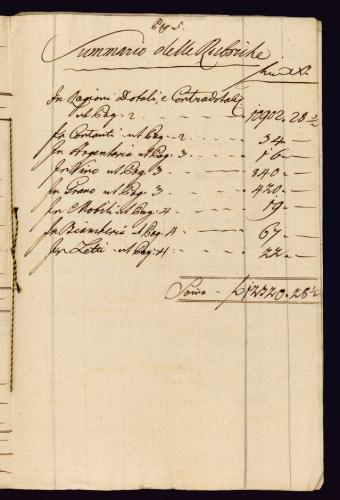 Pag 5.
Summario delle Rubriche
In Ragioni Dotali, e Contradotali
ut Pag. 2 - - - - - 10902. 28 ½
In Contanti ut Pag. 2 - - - - 34 —
In Argenteria ut Pag. 3 - - - - 16 —
In Vino ut Pag. 3 - - - - 840 —
In Grano ut Pag. 3 - - - - 420 —
In Mobili ut Pag. 4 - - - - 19 —
In Biancheria ut Pag. 4 - - - - 67 —
In Letti ut Pag. 4 - - - - 22 —
12320. 28 ½